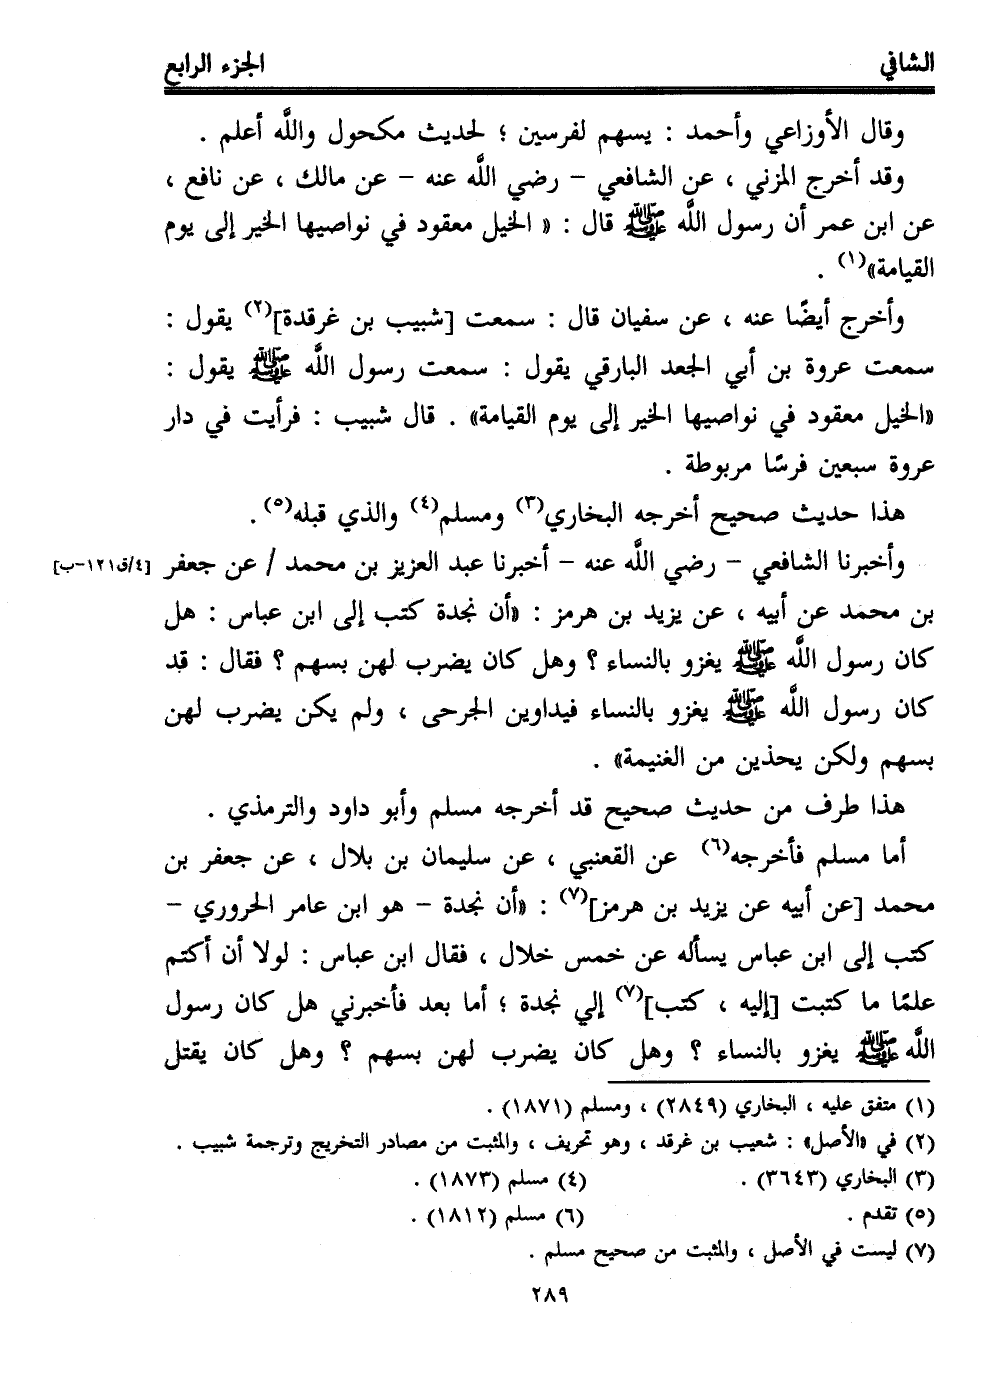 الشافي الجزء الرابع
وقال الأوزاعي وأحمد : يسهم لفرسين ؛ لحديث مكحول واللَّه أعلم .
وقد أخرج المزني ، عن الشافعي - رضي اللَّه عنه - عن مالك ، عن نافع ،
عن ابن عمر أن رسول اللَّه ﷺ قال : « الخيل معقود في نواصيها الخير إلى يوم
القيامة»(١) .
وأخرج أيضًا عنه ، عن سفيان قال : سمعت [شبيب بن غرقدة](٢) يقول :
سمعت عروة بن أبي الجعد البارقي يقول : سمعت رسول اللَّه ﷺ يقول :
«الخيل معقود في نواصيها الخير إلى يوم القيامة» . قال شبيب : فرأيت في دار
عروة سبعين فرسًا مربوطة .
هذا حديث صحيح أخرجه البخاري(٣) ومسلم(٤) والذي قبله(٥) .
وأخبرنا الشافعي - رضي اللَّه عنه - أخبرنا عبد العزيز بن محمد / عن جعفر [٤/ق١٢١-ب]
بن محمد عن أبيه ، عن يزيد بن هرمز : «أن نجدة كتب إلى ابن عباس : هل
كان رسول اللَّه ﷺ يغزو بالنساء ؟ وهل كان يضرب لهن بسهم ؟ فقال : قد
كان رسول اللَّه ﷺ يغزو بالنساء فيداوين الجرحى ، ولم يكن يضرب لهن
بسهم ولكن يحذين من الغنيمة» .
هذا طرف من حديث صحيح قد أخرجه مسلم وأبو داود والترمذي .
أما مسلم فأخرجه(٦) عن القعنبي ، عن سليمان بن بلال ، عن جعفر بن
محمد [عن أبيه عن يزيد بن هرمز](٧) : «أن نجدة - هو ابن عامر الحروري -
كتب إلى ابن عباس يسأله عن خمس خلال ، فقال ابن عباس : لولا أن أكتم
علمًا ما كتبت [إليه ، كتب](٧) إلي نجدة ؛ أما بعد فأخبرني هل كان رسول
اللَّه ﷺ يغزو بالنساء ؟ وهل كان يضرب لهن بسهم ؟ وهل كان يقتل
(١) متفق عليه ، البخاري (٢٨٤٩) ، ومسلم (١٨٧١) .
(٢) في «الأصل» : شعيب بن غرقد ، وهو تحريف ، والمثبت من مصادر التخريج وترجمة شبيب .
(٣) البخاري (٣٦٤٣) . (٤) مسلم (١٨٧٣) .
(٥) تقدم . (٦) مسلم (١٨١٢) .
(٧) ليست في الأصل ، والمثبت من صحيح مسلم .
٢٨٩